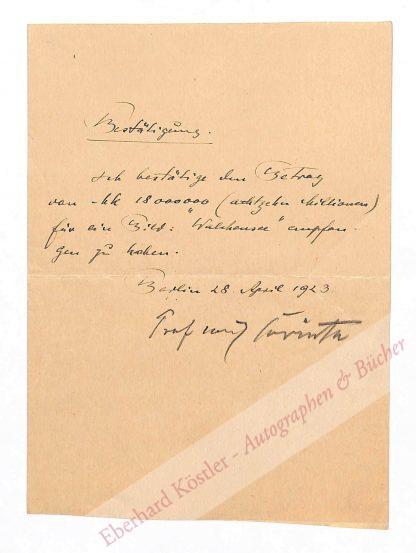 Bestätigung.
Ich bestätige den Betrag
von Mk 18000000 (achtzehn Millionen)
für ein Bild: "Walchensee" empfan-
gen zu haben.
Berlin 28. April 1923
Prof Corinth
Eberhard Köstler - Autographen & Bücher